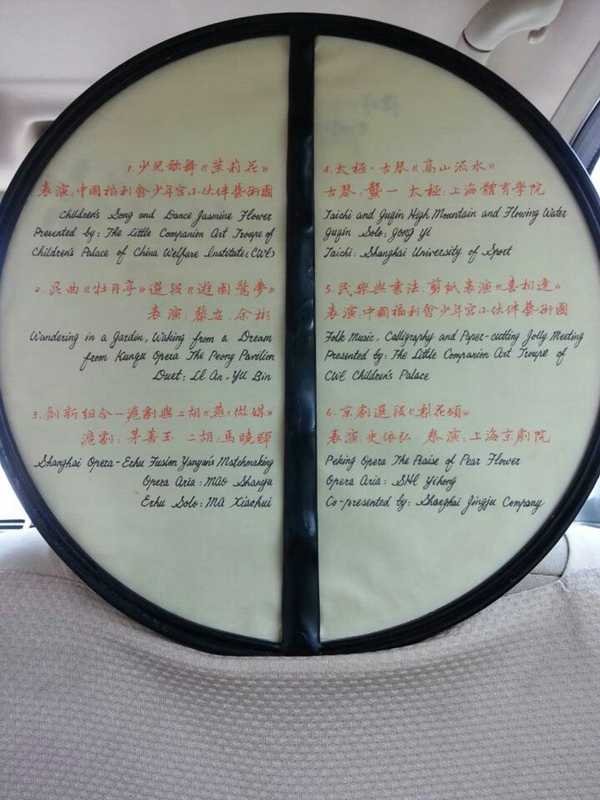 1.少兒歌舞《茉莉花》
表演:中國福利會少年宮小伙伴藝術團
Children's Song and Dance Jasmine Flower
Presented by: The Little Companion Art Troupe of
Children's Palace of China Welfare Institute (CWI)
2. 昆曲《牡丹亭》選段《遊園驚夢》
表演:黎安.余彬
Wandering in a Garden, Waking from a Dream
from Kunqu Opera The Peony Pavilion
Duet: LI An, YU Bin
3.創新組合—滬劇與二胡《燕做媒》
滬劇:茅善玉 二胡:馬曉暉
Shanghai Opera-Erhu Fusion Yanyan's Matchmaking
Opera Aria: MAO Shanyu
Erhu Solo: MA Xiaohui
4.太極·古琴《高山流水》
古琴:龔一 太極:上海體育學院
Taichi and Guqin High Mountain and Flowing Water
Guqin Solo: Gong Yi
Taichi: Shanghai University of Sport
5.民樂與書法.剪紙表演《喜相逢》
表演:中國福利會少年宮小伙伴藝術團
Folk Music, Calligraphy and Paper-cutting Jolly Meeting
Presented by: The Little Companion Art Troupe of
CWI Children's Palace
6.京劇選段《梨花頌》
表演:史依弘 參演:上海京劇院
Peking Opera The Praise of Pear Flower
Opera Aria: SHI Yihong
Co-presented by: Shanghai Jingju Company